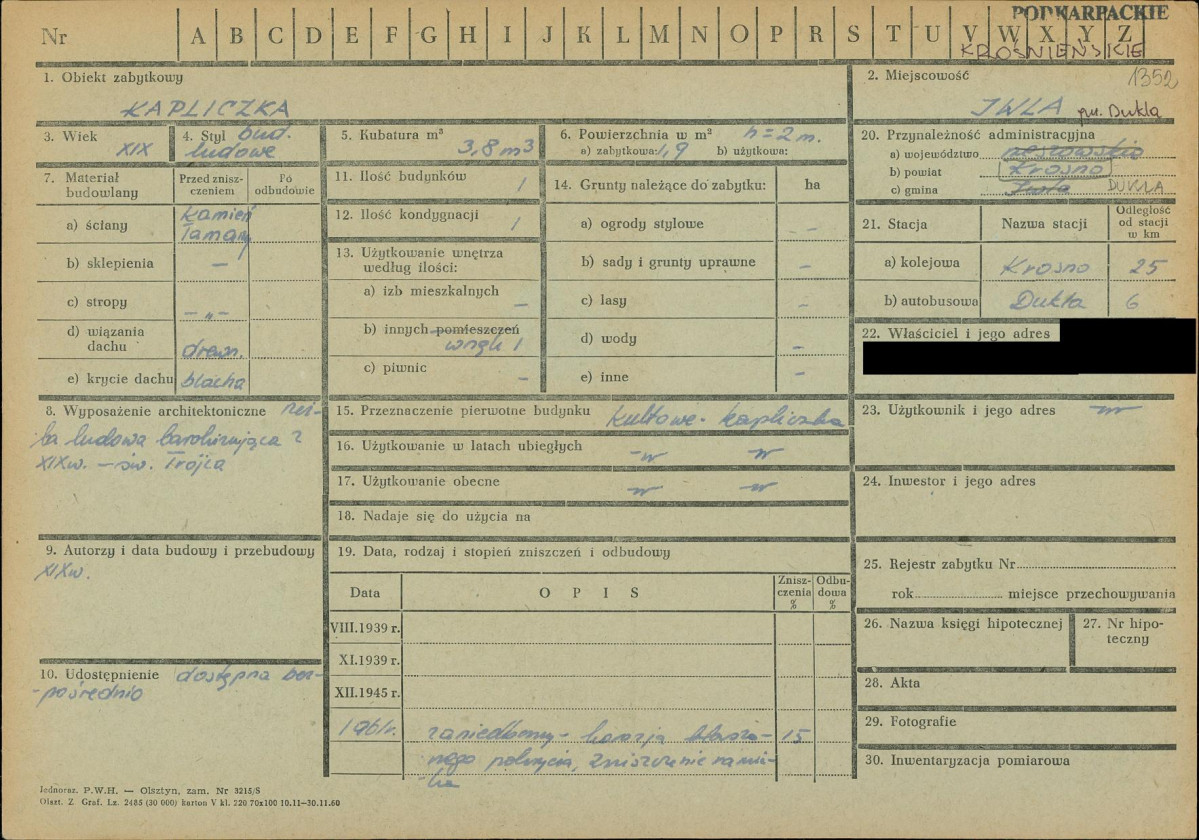 PODKARPACKIE
Nr A B C D E F G H I J K L M N O P R S T U V W X Y Z
KROŚNIEŃSKIE
1. Obiekt zabytkowy
KAPLICZKA
2. Miejscowość 1352
IWLA gm. Dukla
3. Wiek
XIX
4. Styl bud.
ludowe
5. Kubatura m³
3,8 m3
6. Powierzchnia w m² h = 2 m.
a) zabytkowa: 1,9 b) użytkowa:
20. Przynależność administracyjna
a) województwo rzeszowskie
b) powiat Krosno
c) gmina Iwla DUKLA
7. Materiał budowlany
Przed zniszczeniem
Po odbudowie
a) ściany kamień łamany
b) sklepienia —
c) stropy — „ —
d) wiązania dachu drewn.
e) krycie dachu blacha
11. Ilość budynków 1
12. Ilość kondygnacji 1
13. Użytkowanie wnętrza
według ilości:
a) izb mieszkalnych –
b) innych pomieszczeń
wnęk 1
c) piwnic –
14. Grunty należące do zabytku: ha
a) ogrody stylowe –
b) sady i grunty uprawne –
c) lasy –
d) wody –
e) inne –
21. Stacja Nazwa stacji Odległość od stacji w km
a) kolejowa Krosno 25
b) autobusowa Dukla 6
22. Właściciel i jego adres
8. Wyposażenie architektoniczne rzeź-
ba ludowa barokizująca z
XIXw. – św. Trójca
15. Przeznaczenie pierwotne budynku kultowe - kapliczka
16. Użytkowanie w latach ubiegłych –„– –„–
17. Użytkowanie obecne –„– –„–
18. Nadaje się do użycia na
23. Użytkownik i jego adres –„–
24. Inwestor i jego adres
9. Autorzy i data budowy i przebudowy
XIXw.
19. Data, rodzaj i stopień zniszczeń i odbudowy
Data O P I S Zniszczenia % Odbudowa %
VIII.1939 r.
XI.1939 r.
XII.1945 r.
1961r. zaniedbany - korozja blasza- 15
nego pokrycia, zniszczenie namio-
25. Rejestr zabytku Nr
rok miejsce przechowywania
26. Nazwa księgi hipotecznej
27. Nr hipoteczny
10. Udostępnienie dostępna bez-
-pośrednio
28. Akta
29. Fotografie
30. Inwentaryzacja pomiarowa
Jednoraz. P.W.H. — Olsztyn, zam. Nr 3215/S
Olszt. Z. Graf. Lz. 2485 (30 000) karton V kl. 220 70x100 10.11—30.11.60